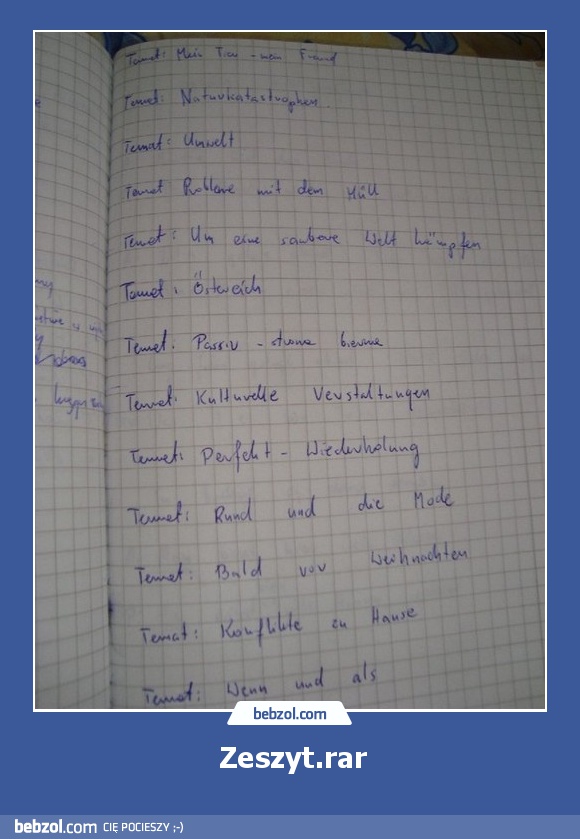 Temat: Mein Tier - mein Freund
Temat: Naturkatastrophen
Temat: Umwelt
Temat Probleme mit dem Müll
Temat: Um eine saubere Welt kämpfen
Temat: Östereich
Temat. Passiv - strona bierna
Temat: Kulturelle Verstaltungen
Temat: Perfekt - Wiederholung
Temat: Rund und die Mode
Temat: Bald vor Weihnachten
Temat: Konflikte zu Hause
Temat: Wenn und als
bebzol.com
Zeszyt.rar
bebzol.com CIĘ POCIESZY ;-)